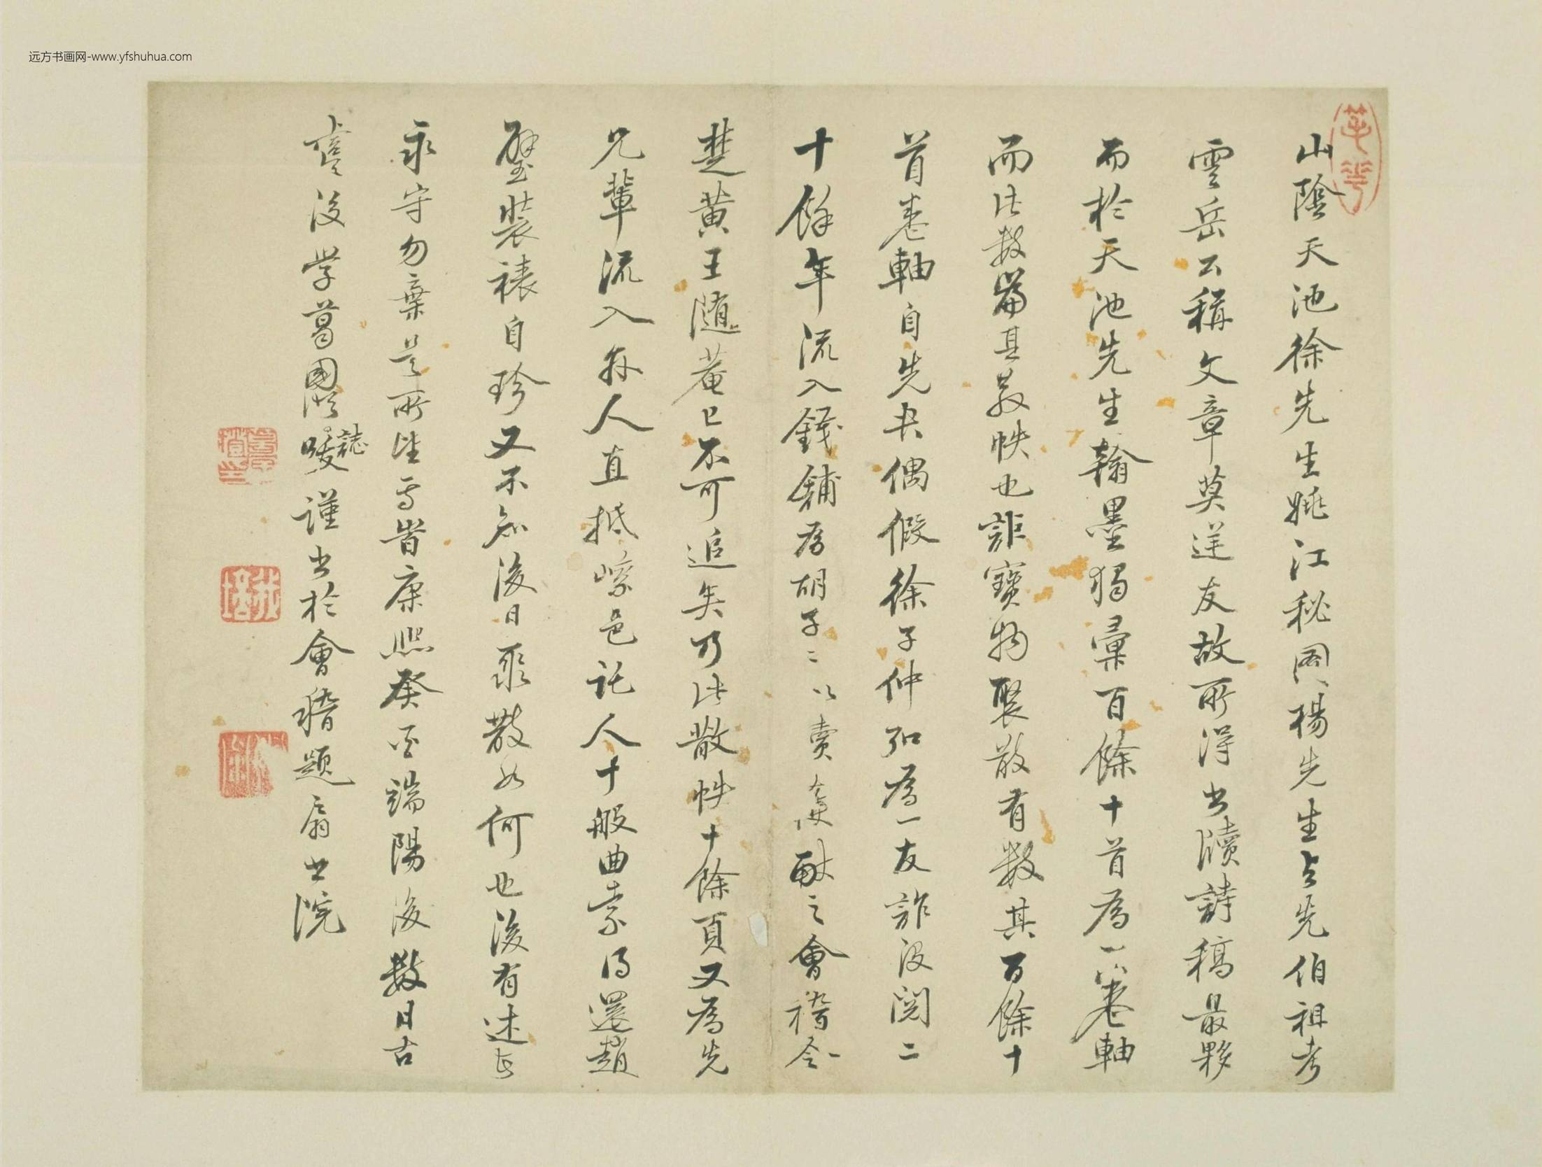 远方书画网-www.yfshuhua.com
山陰天池徐先生姚江秘圖楊先生與先伯祖考
雲岳公稱文章莫逆友故所得書牘詩稿最夥
而於天池先生翰墨獨彙百餘十首為一卷軸
而此數篇其散帙也詎寶物聚散有數其百餘十
首卷軸自先夫偶假徐子仲弘為一友詐沒閱二
十餘年流入錢鋪為胡子以賣獻之會稽令
楚黃王隨菴已不可追矣乃此散帙十餘頁又為先
兄輩流入他人直抵嵊邑託人十般曲索得還趙
璧裝裱自珍又不知後日聚散如何也後有述者
永守勿棄是所望焉旹康熙癸酉端陽後數日古
虞後學葛國謹書於會稽題扇書院